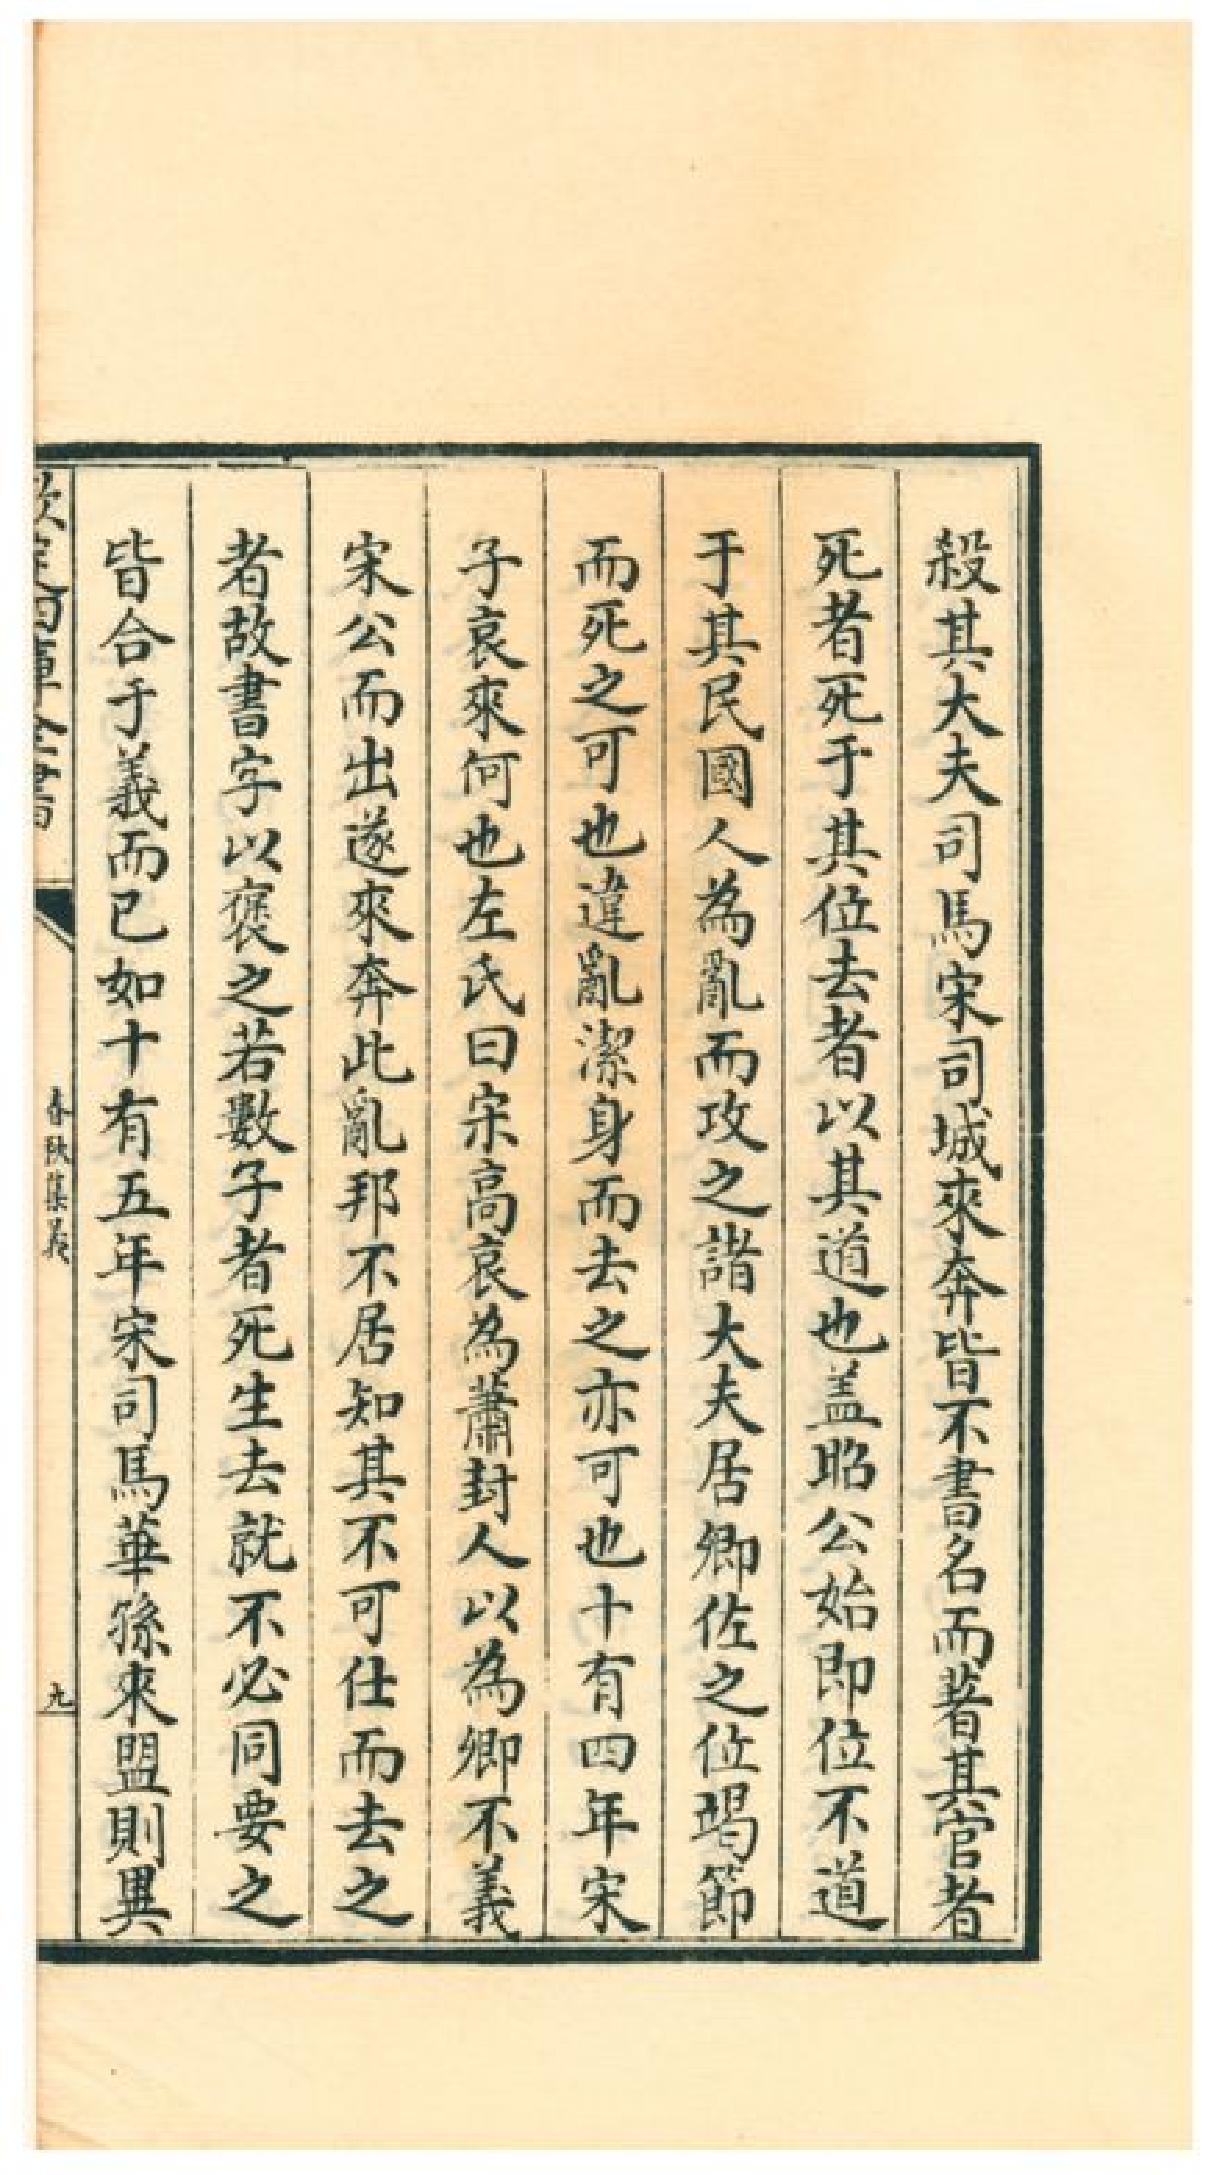 殺其大夫司馬宋司城來奔皆不書名而著其官者
死者死于其位去者以其道也盖昭公始即位不道
于其民國人為亂而攻之諸大夫居卿佐之位竭節
而死之可也違亂潔身而去之亦可也十有四年宋
子哀來何也左氏曰宋高哀為蕭封人以為卿不義
宋公而出遂來奔此亂邦不居知其不可仕而去之
者故書字以褒之若數子者死生去就不必同要之
皆合于義而已如十有五年宋司馬華孫來盟則異
欽定四庫全書
春秋集義
九